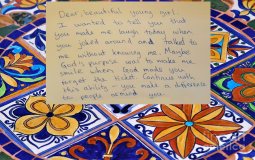 Dear beautiful young girl,
I wanted to tell you that
you made me laugh today when
you joked around and talked to
me without knowing me. Maybe
God's purpose was to make me
smile when God made you
forget the ticket. Continue with
this ability - you make a difference
to people around you.